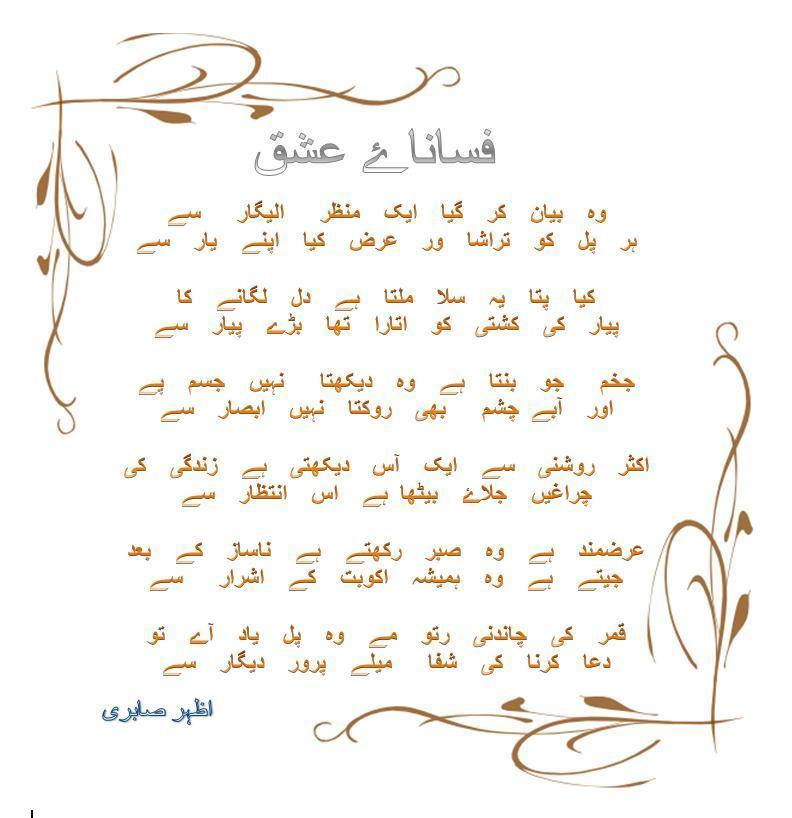 فساناۓ عشق
وہ بیان کر گیا ایک منظر الیگار سے
ہر پل کو تراشا ور عرض کیا اپنے یار سے
کیا پتا یہ سلا ملتا ہے دل لگانے کا
پیار کی کشتی کو اتارا تھا بڑے پیار سے
جخم جو بنتا ہے وہ دیکھتا نہیں جسم پے
اور آبے چشم بھی روکتا نہیں ابصار سے
اکثر روشنی سے ایک آس دیکھتی ہے زندگی کی
چراغیں جلاۓ بیٹھا ہے اس انتظار سے
عرضمند ہے وہ صبر رکھتے ہے ناساز کے بعد
جیتے ہے وہ ہمیشہ اکوبت کے اشرار سے
قمر کی چاندنی رتو مے وہ پل یاد آے تو
دعا کرنا کی شفا میلے پرور دیگار سے
اظہر صابری